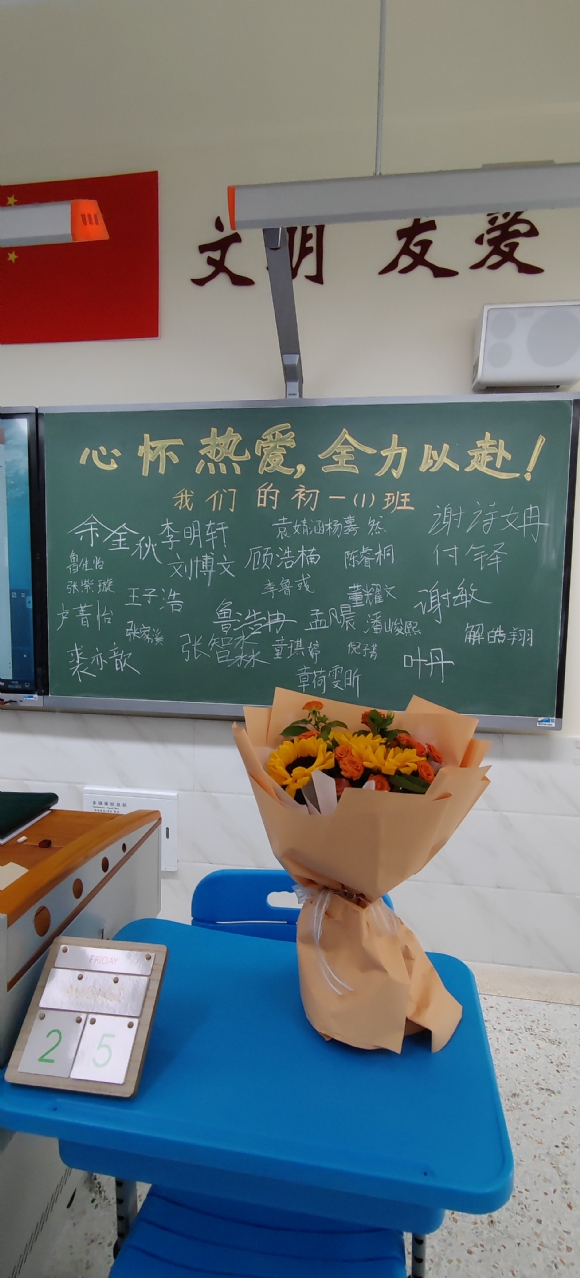 文明 友爱
心怀热爱，全力以赴！
我们的初一（1）班
余全秋 李明轩 袁婧涵 杨蓦然 谢诗冉
鲁佳怡 刘博文 顾浩楠 陈睿桐 付铎
张紫璇 王子浩 李鲁彧 董耀文 谢敏
卢菁怡 张家溪 鲁浩冉 孟晨 潘峻熙 解皓翔
裘亦歆 张智霖 童琪婷 倪靖 叶丹
章荷雯昕
FRIDAY
25